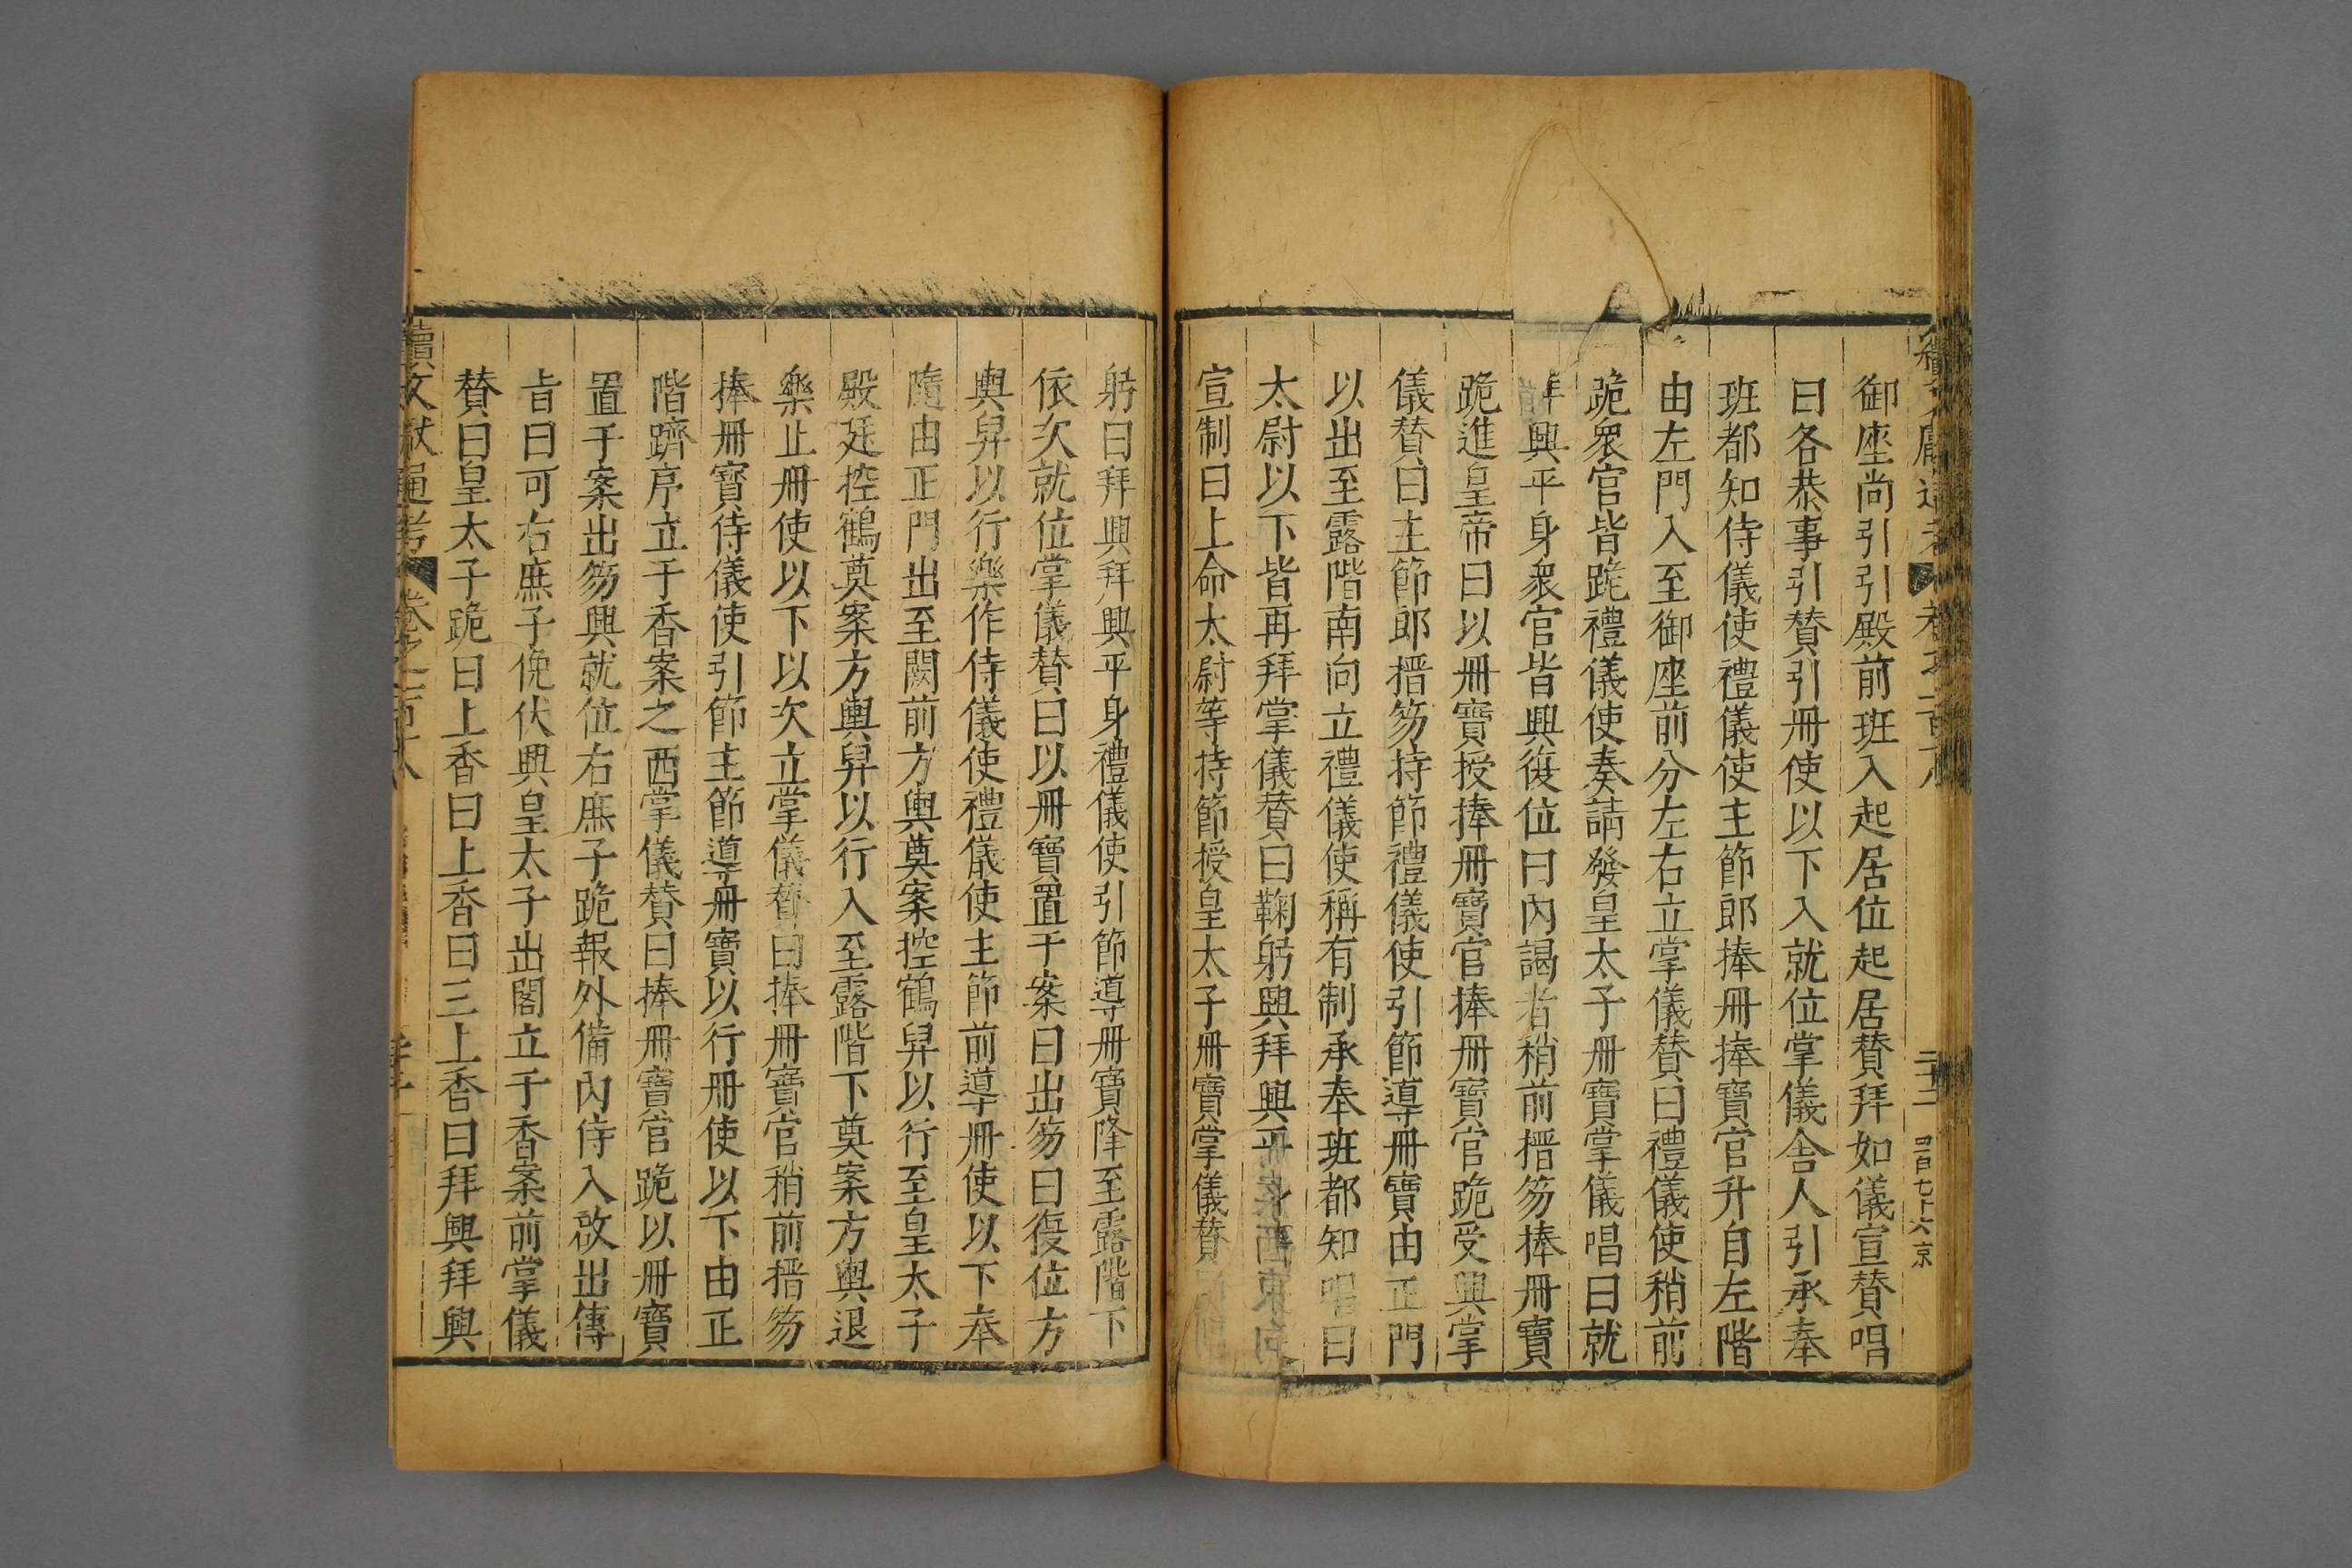 御座尚引引殿前班入起居位起居贊拜如儀宣贊唱
曰各恭事引贊引冊使以下入就位掌儀舎人引承奉
班都知侍儀使禮儀使主節郎捧冊捧寶官升自左階
由左門入至御座前分左右立掌儀贊曰禮儀使稍前
跪衆官皆跪禮儀使奏請發皇太子冊寶掌儀唱曰就
興平身衆官皆興復位曰内謁者稍前搢笏捧冊寶
跪進皇帝曰以冊寶授捧冊寶官捧冊寶官跪受興掌
儀贊曰主節郎搢笏持節禮儀使引節導冊寶由正門
以出至露階南向立禮儀使稱有制承奉班都知唱曰
太尉以下皆再拜掌儀贊曰鞠躬興拜興平身
宣制曰上命太尉等持節授皇太子冊寶掌儀贊
躬曰拜興拜興平身禮儀使引節導冊寶降至露階下
依次就位掌儀贊曰以冊寶置于案曰出笏曰復位方
輿舁以行樂作侍儀使禮儀使主節前導冊使以下奉
隨由正門出至闕前方輿奠案控鶴舁以行至皇太子
殿廷控鶴奠案方輿舁以行入至露階下奠案方輿退
樂止冊使以下以次立掌儀贊曰捧冊寶官稍前搢笏
捧冊寶侍儀使引節主節導冊寶以行冊使以下由正
階躋序立于香案之西掌儀贊曰捧冊寶官跪以冊寶
置于案出笏興就位右庶子跪報外備内侍入啟出傳
㫖曰可右庶子俛伏興皇太子出閣立于香案前掌儀
贊曰皇太子跪曰上香曰上香曰三上香曰拜興拜興
續文獻通考 卷之一百十八